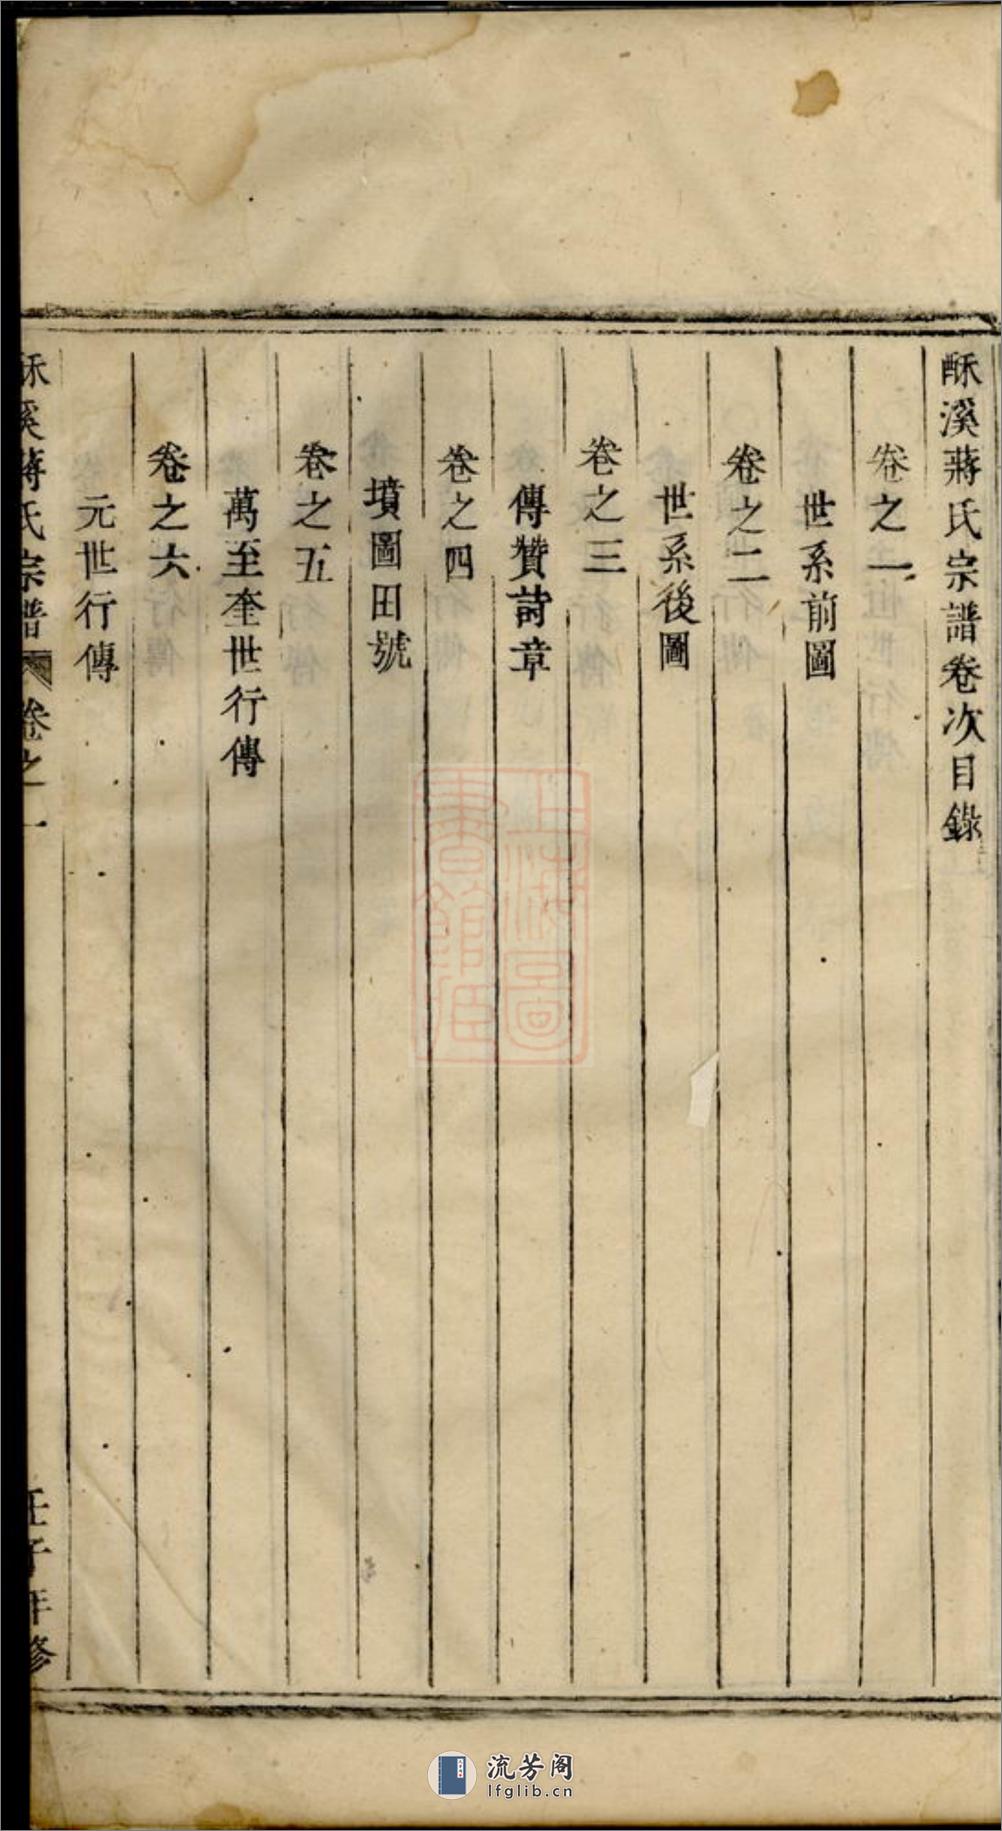 酥溪蔣氏宗譜卷次目錄
卷之一
世系前圖
卷之二
世系後圖
卷之三
傳贊詩章
卷之四
墳圖田號
卷之五
萬至奎世行傳
卷之六
元世行傳
酥溪蔣氏宗譜 卷之一
壬子年修
上海圖書館藏
流芳阁
lfglib.cn